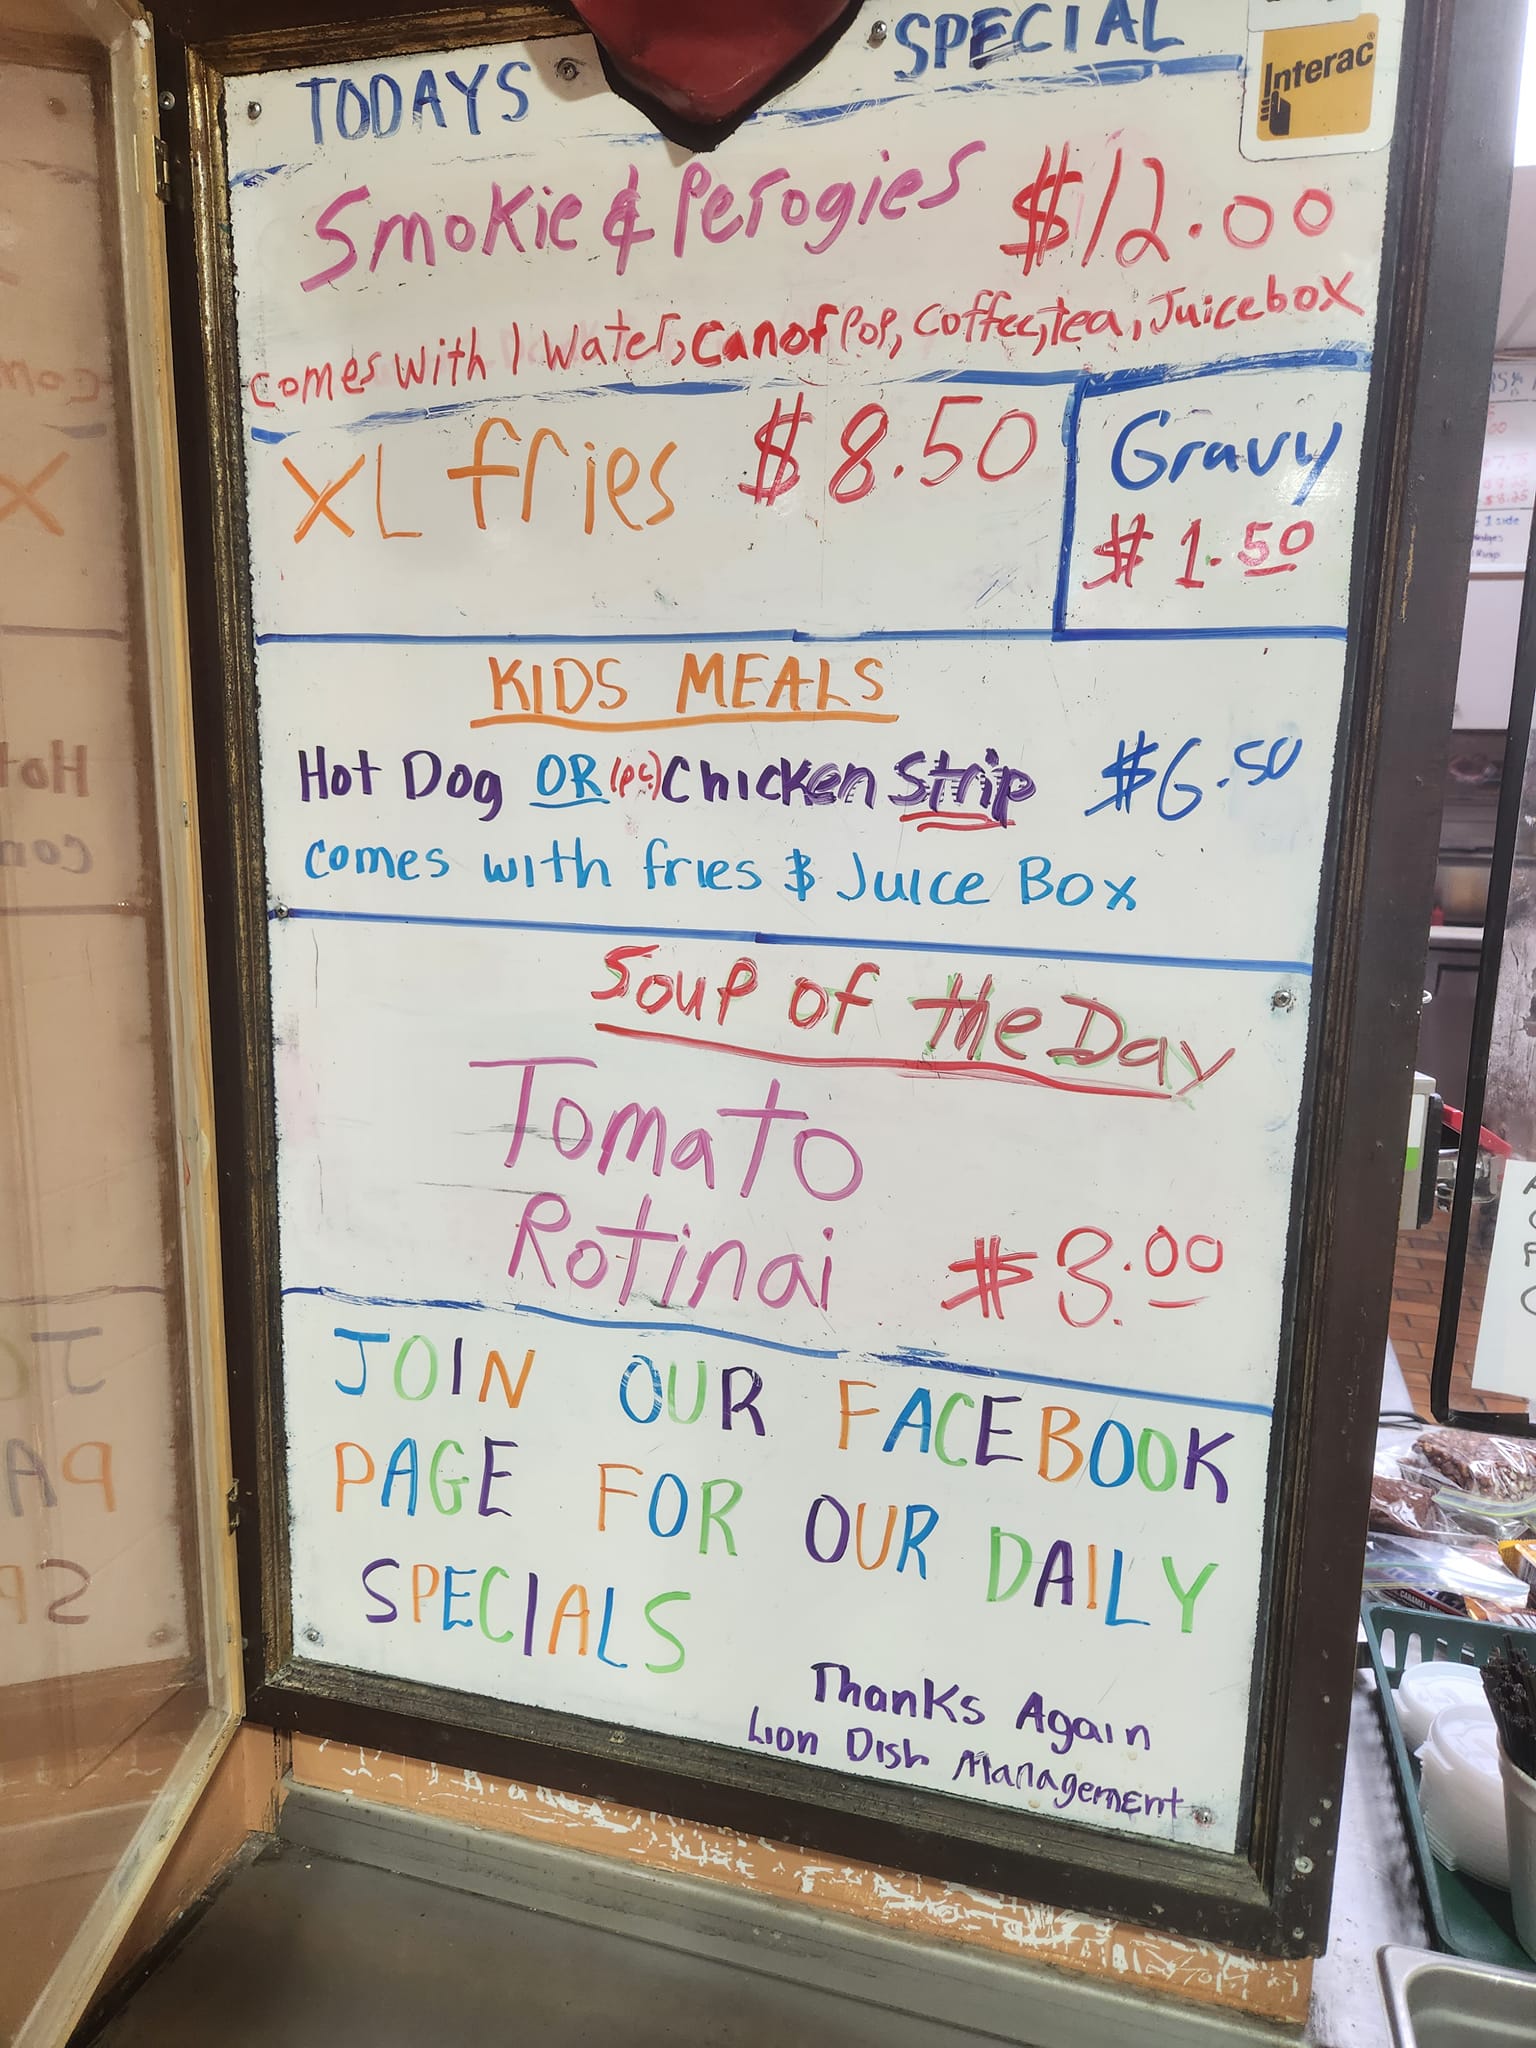 TODAYS SPECIAL
Interac
Smokie & Perogies $12.00
comes with 1 Water, can of Pop, Coffee, tea, Juicebox
XL fries $8.50
Gravy
$1.50
KIDS MEALS
Hot Dog OR (pc.) Chicken Strip $6.50
comes with fries & Juice Box
Soup of the Day
Tomato
Rotinai $3.00
JOIN OUR FACEBOOK
PAGE FOR OUR DAILY
SPECIALS
Thanks Again
Lion Dish Management